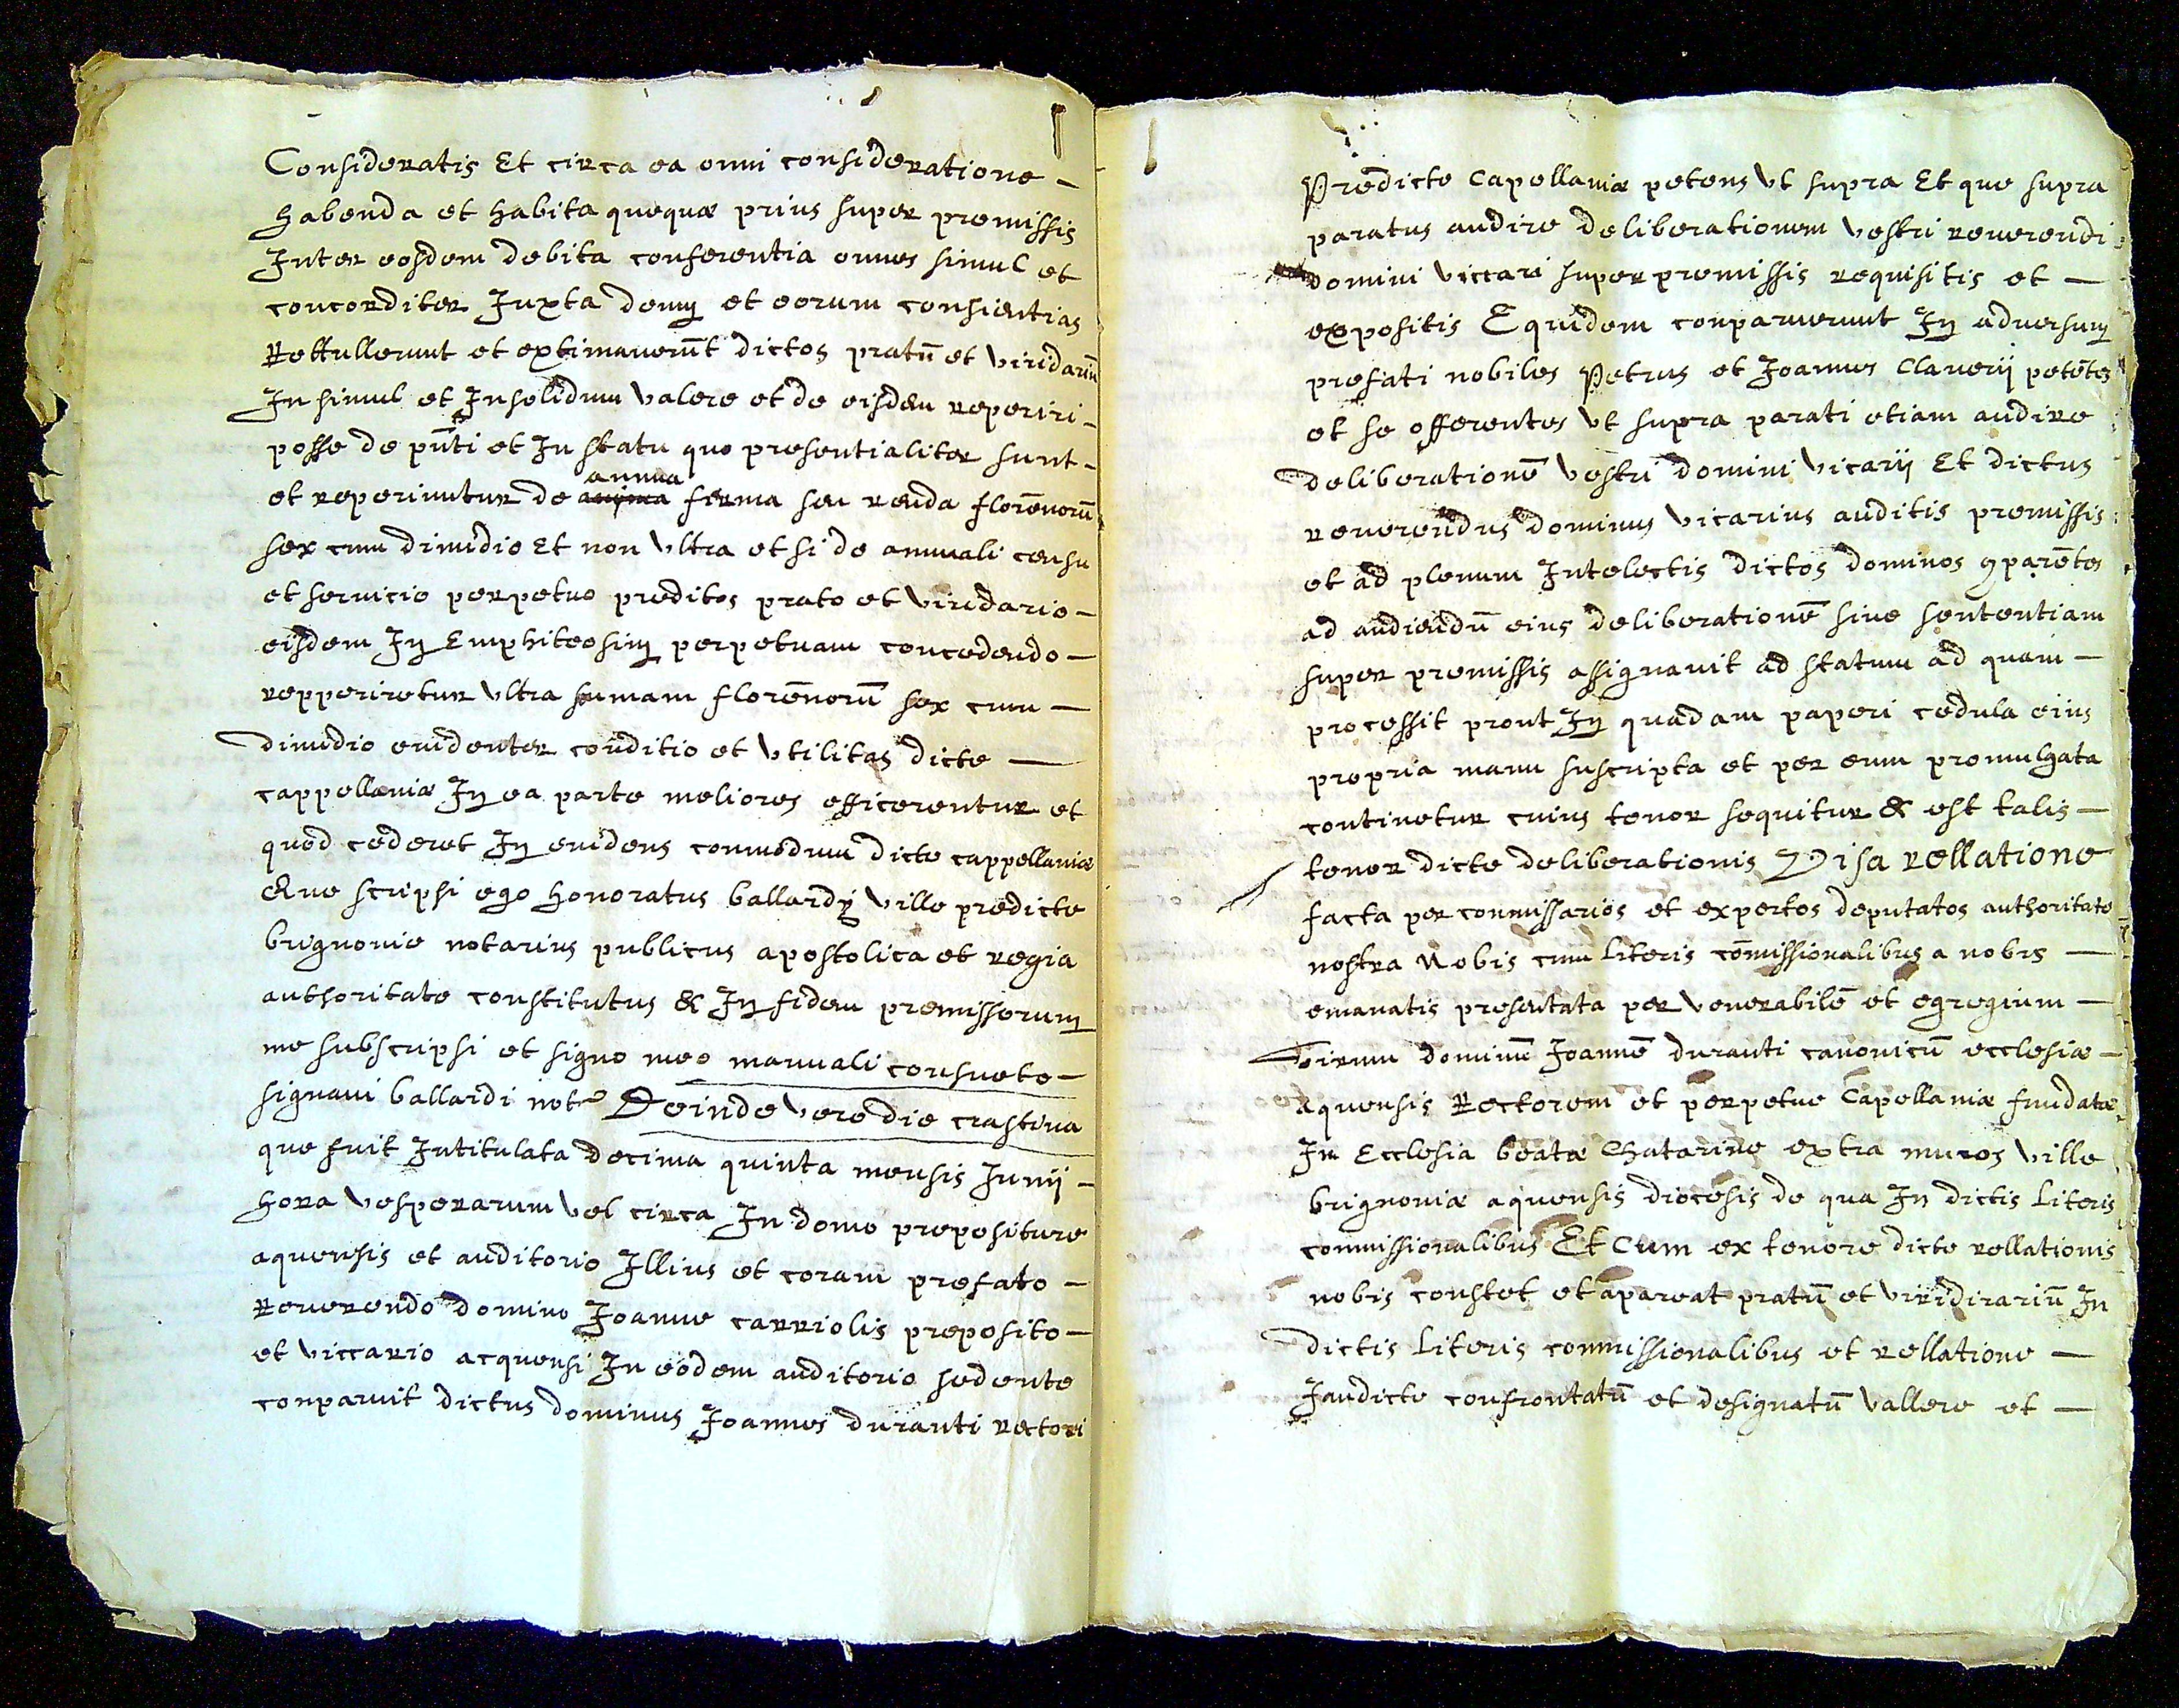 Consideratis Et circa ea omni consideratione –
habenda et habita quequæ prius super premissis
Inter eosdem debita conferentia omnes simul et
concorditer Juxta deum et eorum consientias
Rettullerunt et extimauerūt dictos pratū et viridariū
In simul et In solidum valere et de eisdem reperiri –
posse de pñti et In statu quo presentialiter sunt –
et reperiuntur de annua ferma seu renda florēnorū
sex cum dimidio Et non vltra et si de annuali censu
et seruicio perpetuo preditos prato et viridario –
eisdem In Emphiteosim perpetuam concedendo –
repperiretur vltra sumam florēnorū sex cum –
dimidio euidenter conditio et vtilitas dicte –
cappellaniæ In ea parte meliores efficerentur et
quod cederet In euidens commodum dicte cappellaniæ
Que scripsi ego honoratus ballardy ville predicte
brignonie notarius publicus apostolica et regia
authoritate constitutus & In fidem premissorum
me subscripsi et signo meo manuali consueto –
signaui ballardi not.̃ Deinde vero die crastina
que fuit Intitulata decima quinta mensis Junij –
hora vesperarum vel circa In domo prepositure
aquensis et auditorio Illius et coram prefato –
Reuerendo domino Joanne carriolis preposito –
et viccario acquensi In eodem auditorio sedente
conparuit dictus dominus Joannes duranti rectori
Predicte Capellaniæ petens vt supra Et que supra
paratus audire deliberationem vestri reuerendi
domini viccari super premissis requisitis et –
expositis Equidem conparuerunt In aduersum
prefati nobiles Petrus et Joannes Clauerij petētes
et se offerentes vt supra parati etiam audire
deliberationē vestri domini vicarij Et dictus
reuerendus dominus vicarius auditis premissis
et ad plenum Intelectis dictos dominos 9parētes
ad audiendū eius deliberationē siue sententiam
super premissis assignauit ad statum ad quam –
processit prout In quadam paperi cedula eius
propria manu suscripta et per eum promulgata
continetur cuius tenor sequitur & est talis –
tenor dicte deliberationis Visa rellatione
facta per commissarios et expertos deputatos authoritate
nostra Nobis cum Literis cōmissionalibus a nobis –
emanatis presentata per venerabilē et egregium –
virum dominū Joannē duranti canonicū ecclesiæ –
aquensis Rectorem et perpetue Capellaniæ fundatæ
In Ecclesia beatæ Chatarine extra muros ville
brignoniæ aquensis diocesis de qua In dictis Literis
commissionalibus Et Cum ex tenore dicte rellationis
nobis constet et apareat pratū et viridirariū In
dictis Literis commissionalibus et rellatione –
Jandicte confrontatū et designatū vallere et –